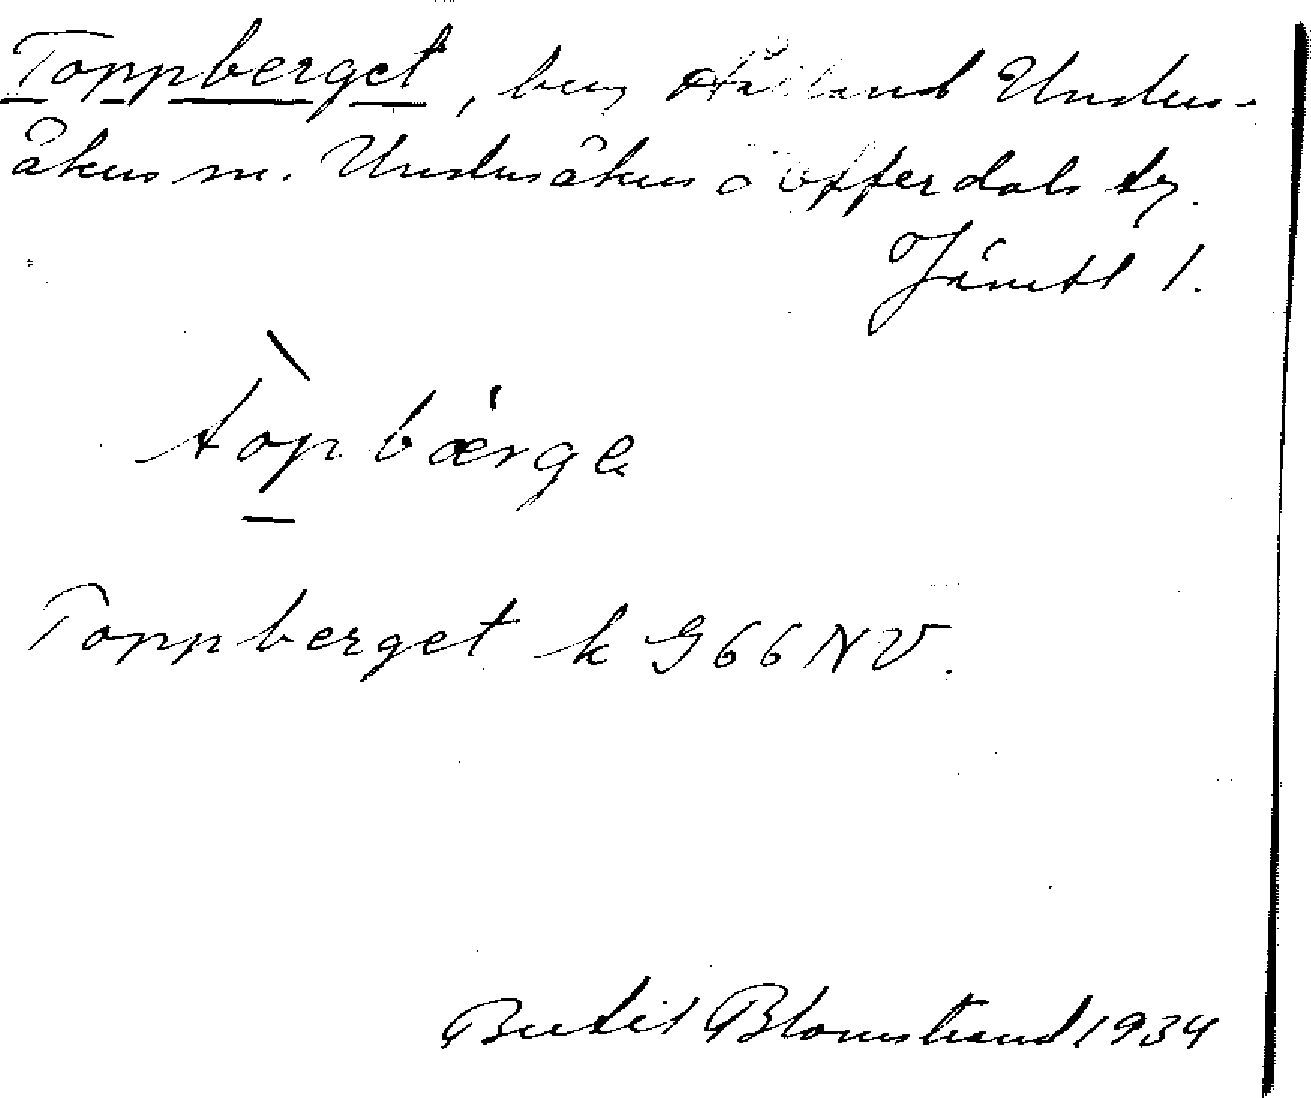 Toppberget, berg Håland Unders-
åkers sn. Undersåkers o Offerdals tg.
Jämtl l.
tòp bærge
Toppberget k G66NV.
Bertil Blomstrand 1934